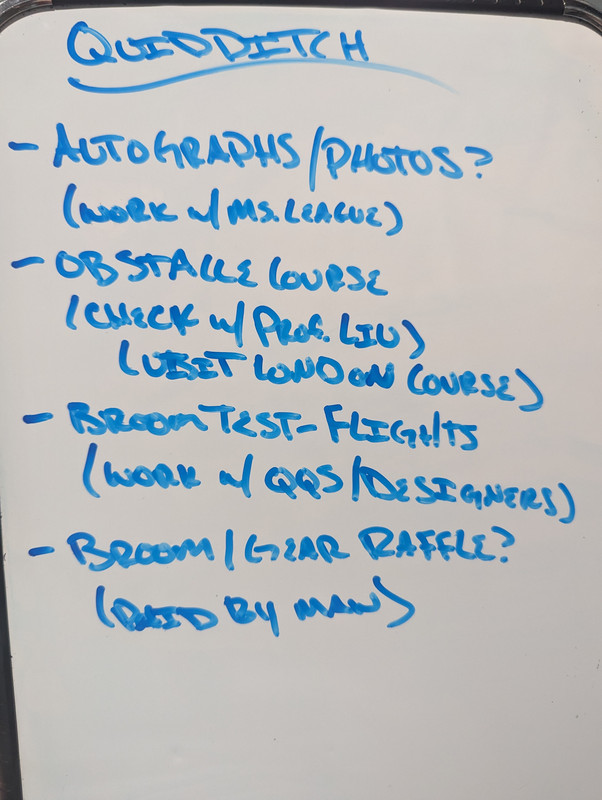 QUIDDITCH
- AUTOGRAPHS/PHOTOS?
(WORK w/ MS. LEAGUE)
- OBSTACLE COURSE
(CHECK w/ PROF. LIU)
(VISIT LONDON COURSE)
- BROOM TEST-FLIGHTS
(WORK w/ QQS/DESIGNERS)
- BROOM/GEAR RAFFLE?
(PAID BY MAW)